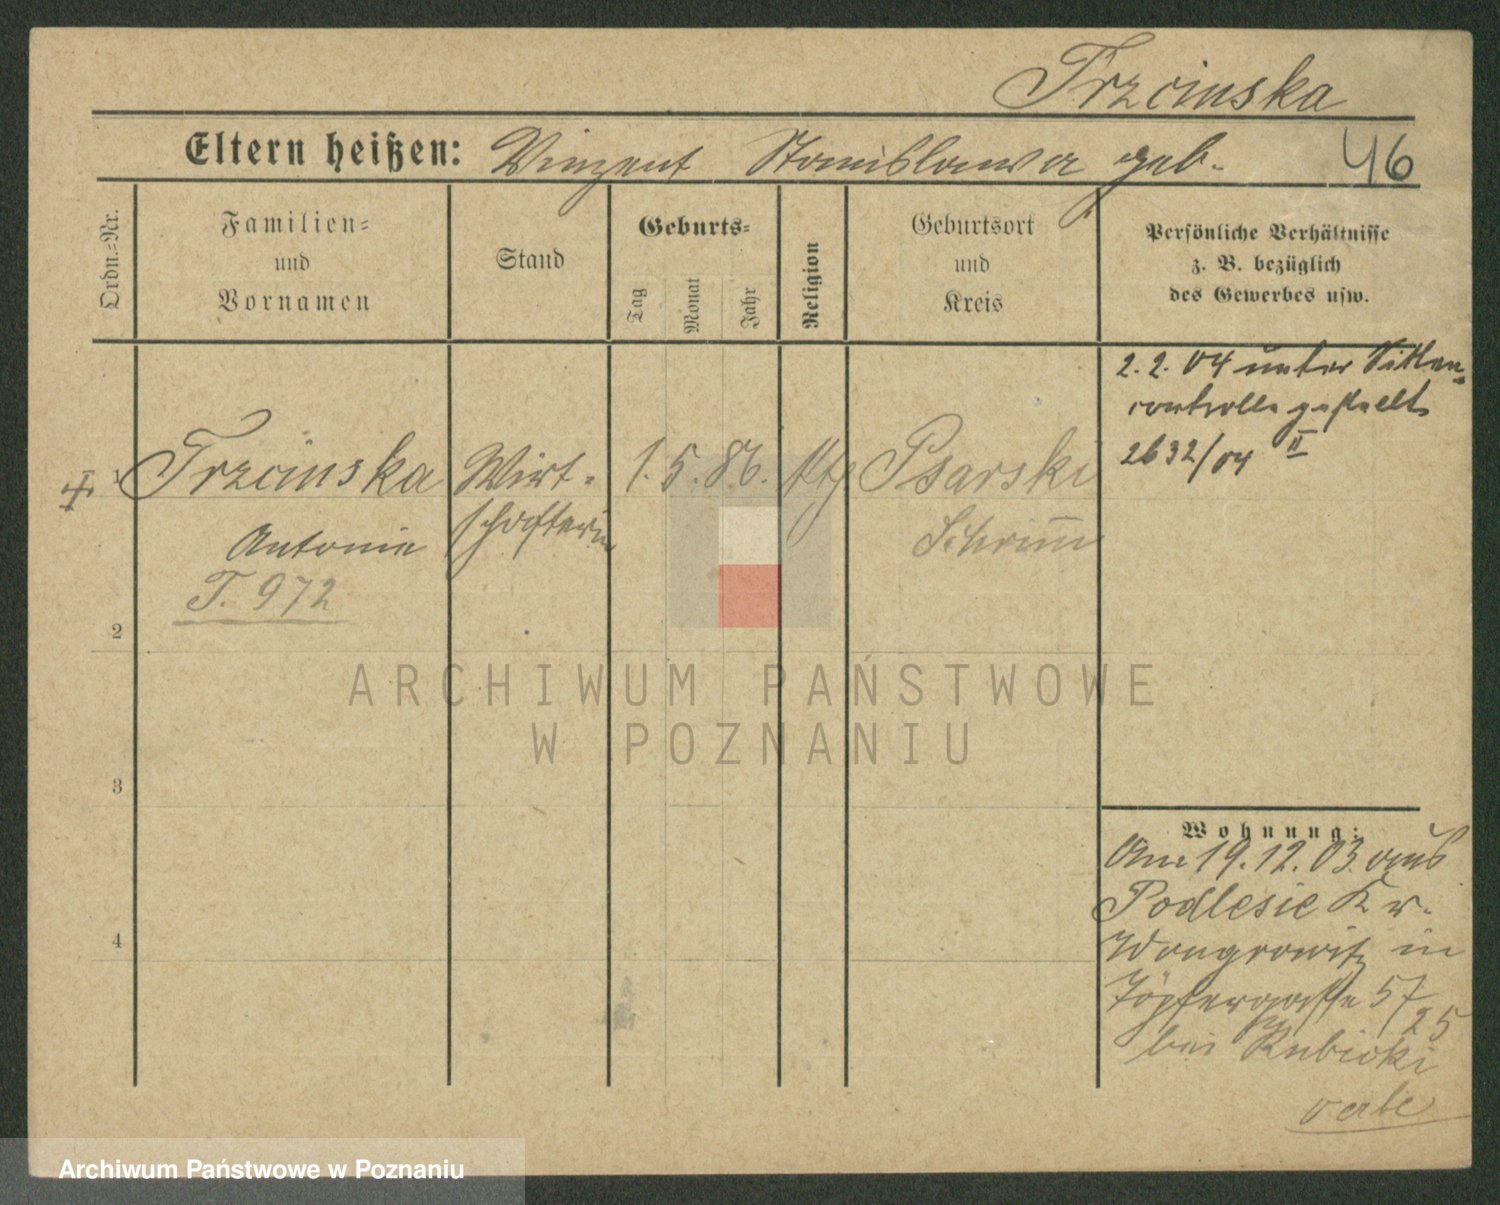 Trzcinska
Eltern heißen: Vinzent Stanislawa geb.
46
Ordn.=Nr.
Familien=
und
Vornamen
Stand
Geburts=
Tag
Monat
Jahr
Religion
Geburtsort
und
Kreis
Persönliche Verhältnisse
z. B. bezüglich
des Gewerbes usw.
1 Trzcinska Wirt- 1. 5. 86. ktg Psarski
Antonie schafterin Schrimm
T. 972
2. 2. 04 unter Sitten-
controlle gestellt
2632/04 II
2
3
4
Wohnung:
Am 19.12.03. aus
Podlesie Kr.
Wongrowitz in
Töpfergasse 57
/25
bei Rubicki
ARCHIWUM PAŃSTWOWE
W POZNANIU
Archiwum Państwowe w Poznaniu